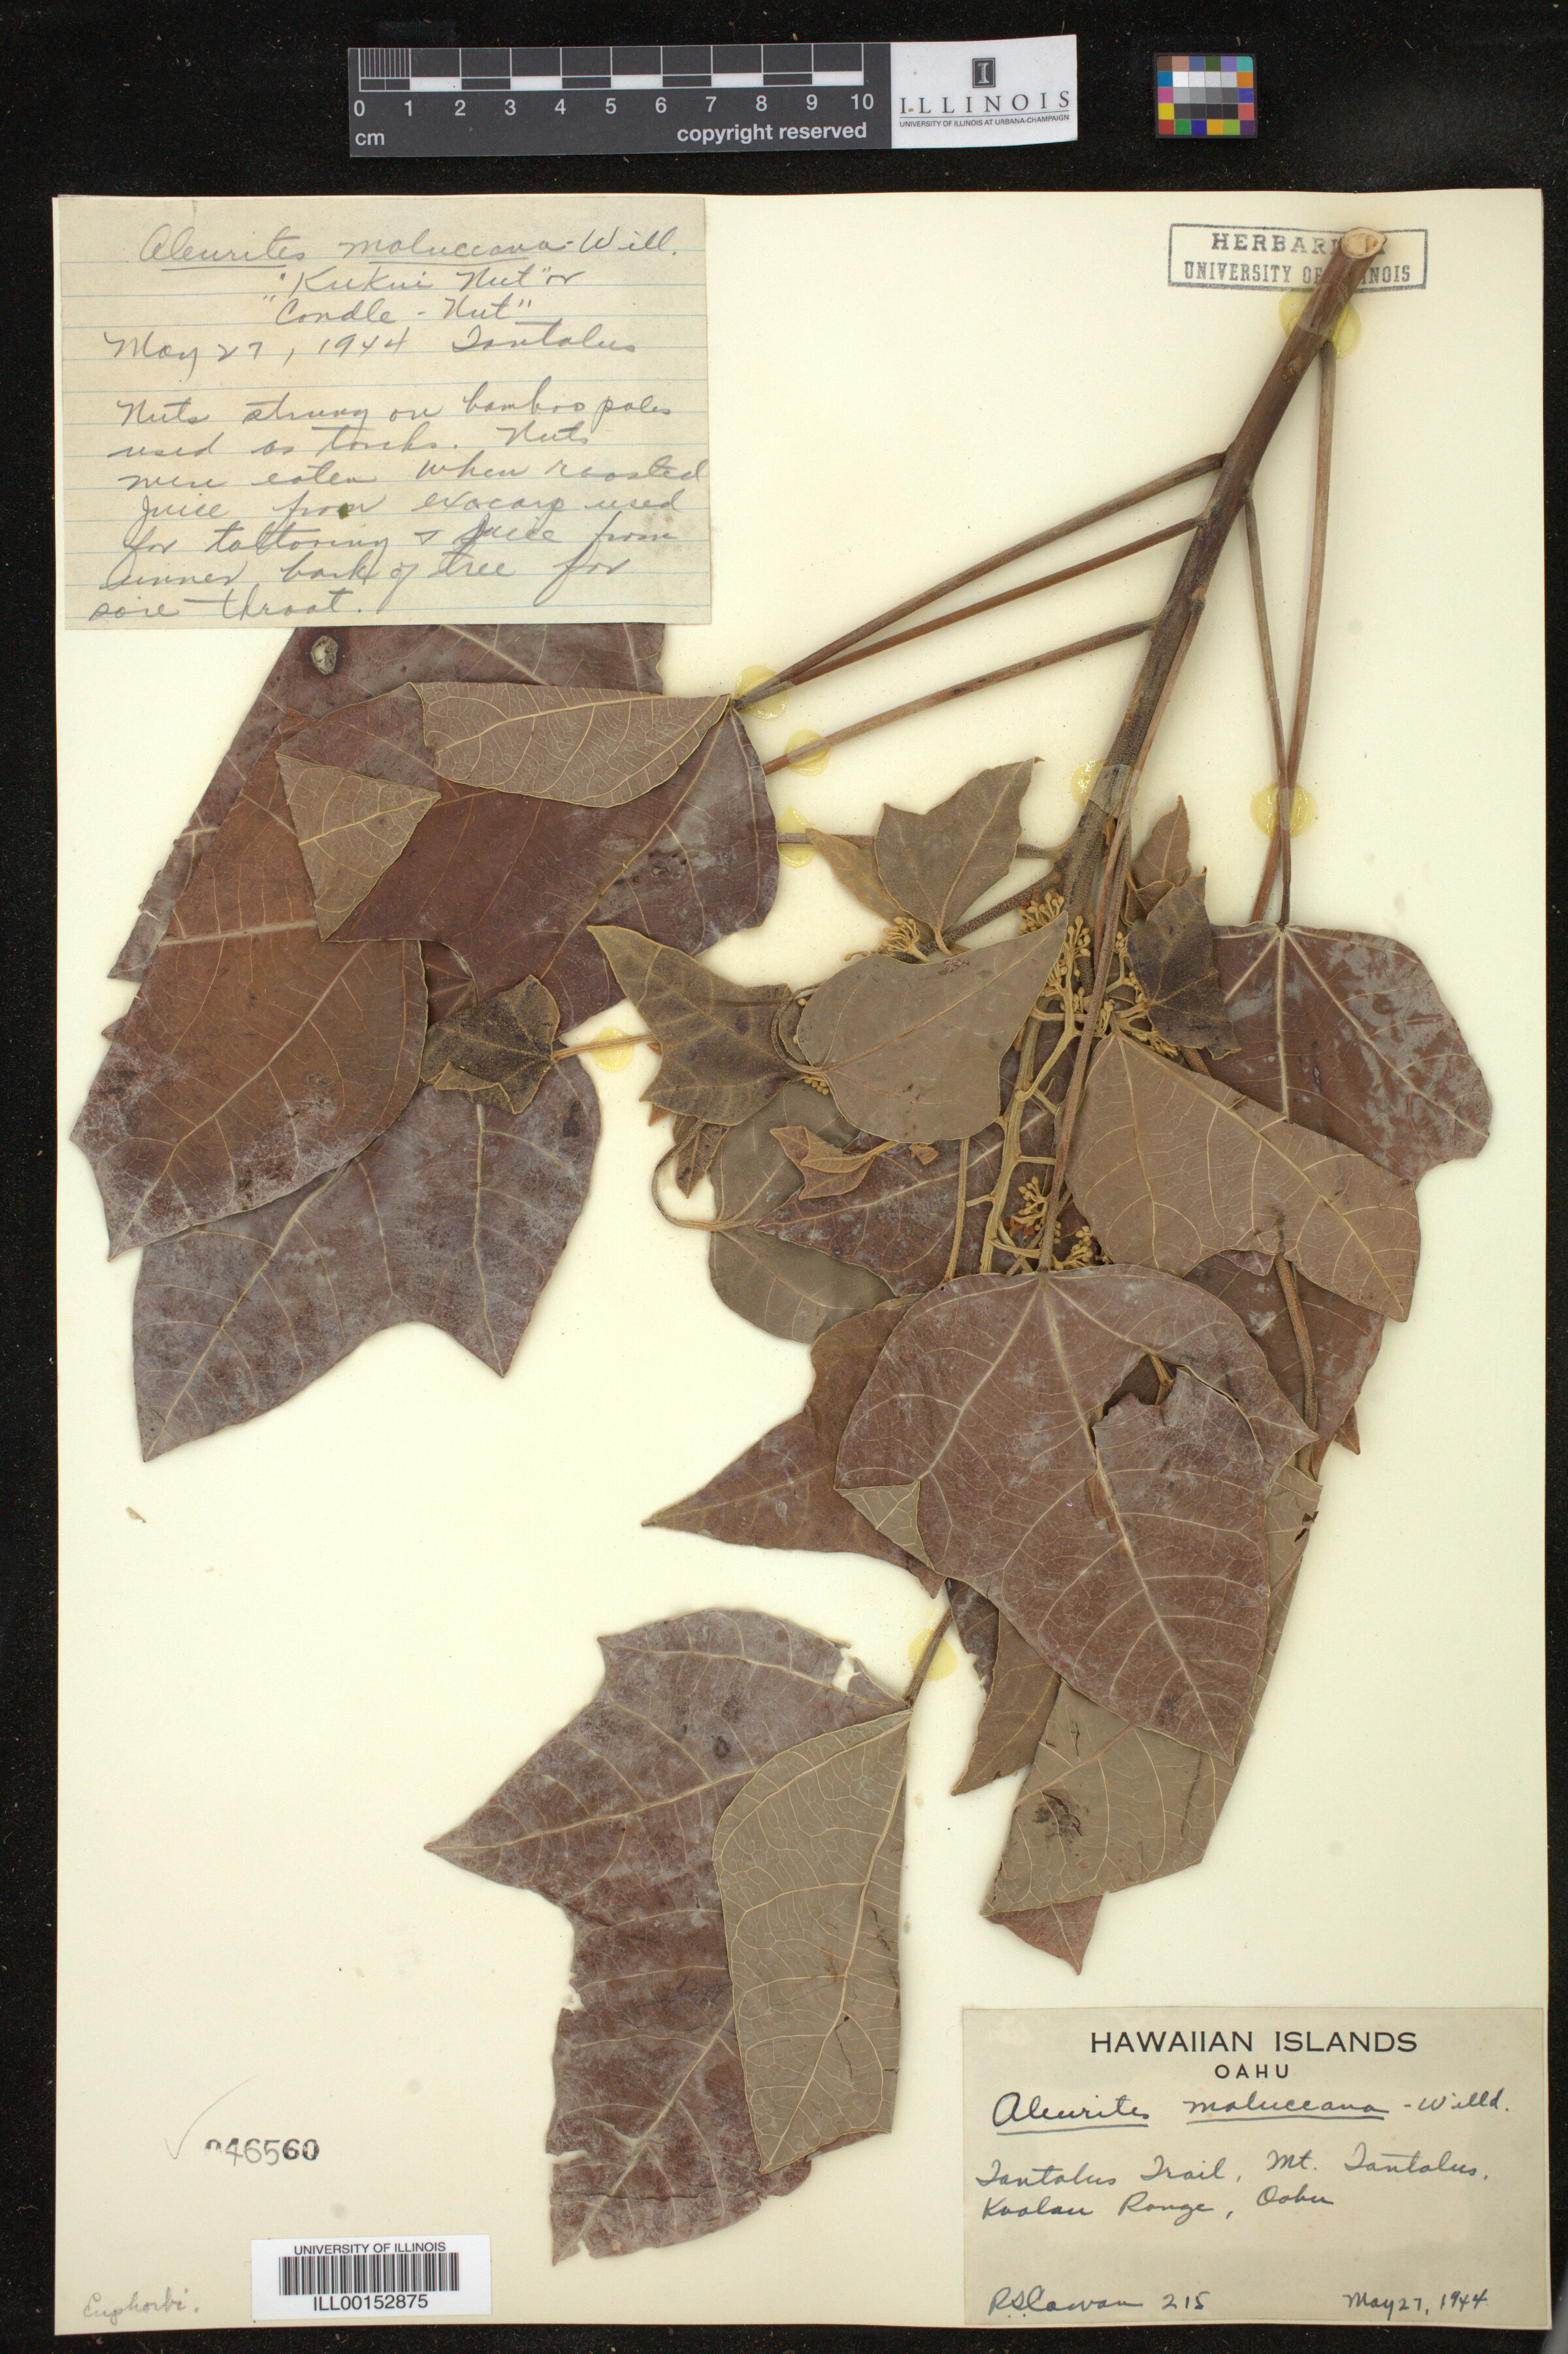 0 1 2 3 4 5 6 7 8 9 10
cm
copyright reserved
I
ILLINOIS
UNIVERSITY OF ILLINOIS AT URBANA-CHAMPAIGN
Aleurites moluccana - Will.
"Kukui Nut" or
"Candle - Nut"
May 27, 1944 Tantalus
Nuts strung on bamboo poles
used as torchs. Nuts
were eaten when roasted
Juice from exocarp used
for tattooing & juice from
inner bark of tree for
sore throat.
HERBARIUM
UNIVERSITY OF ILLINOIS
HAWAIIAN ISLANDS
OAHU
Aleurites moluccana - Willd.
Tantalus Trail, Mt. Tantalus,
Koolau Range, Oahu
R.S. Cowan 215 May 27, 1944
046560
UNIVERSITY OF ILLINOIS
ILL00152875
Euphorbi.